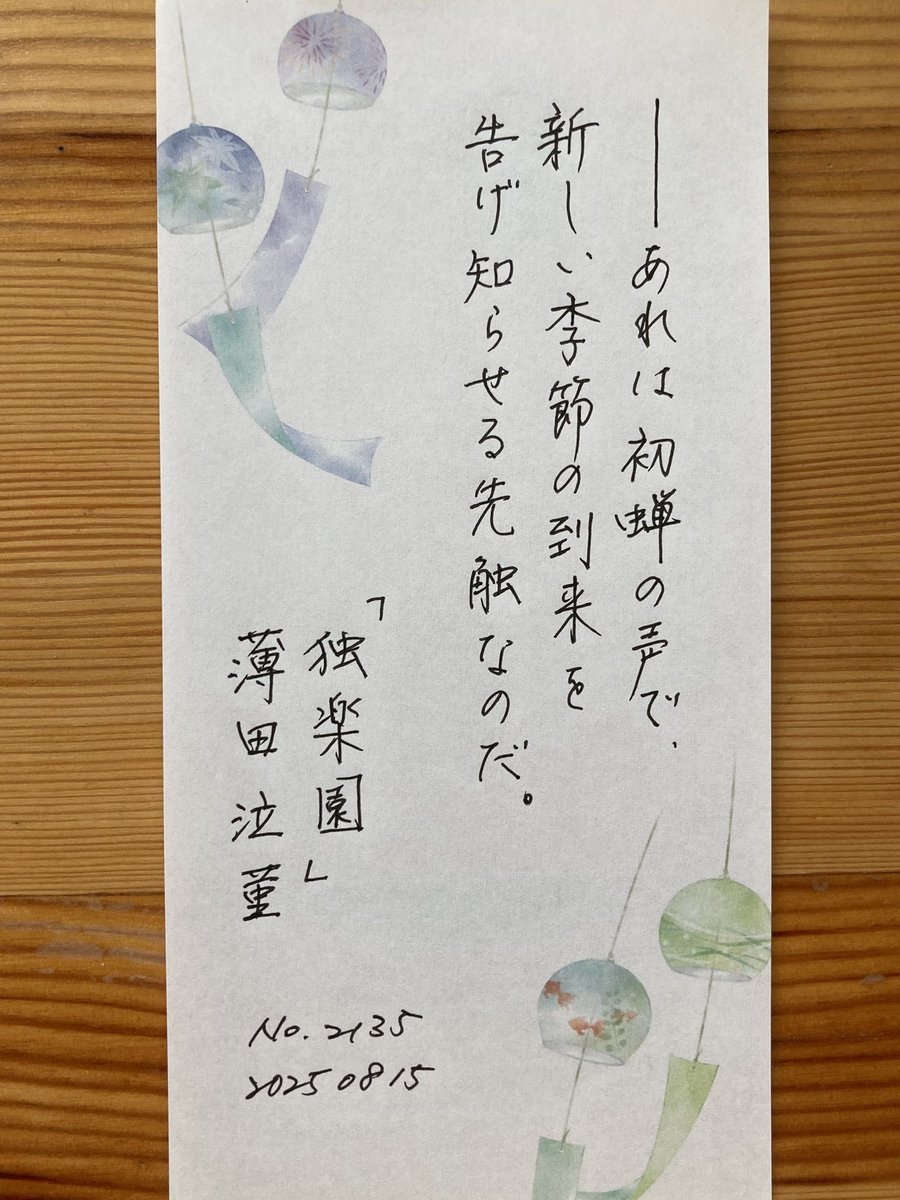 ――あれは初蝉の声で、
新しい季節の到来を
告げ知らせる先触なのだ。
「独楽園」
薄田泣菫
No.2135
20250815